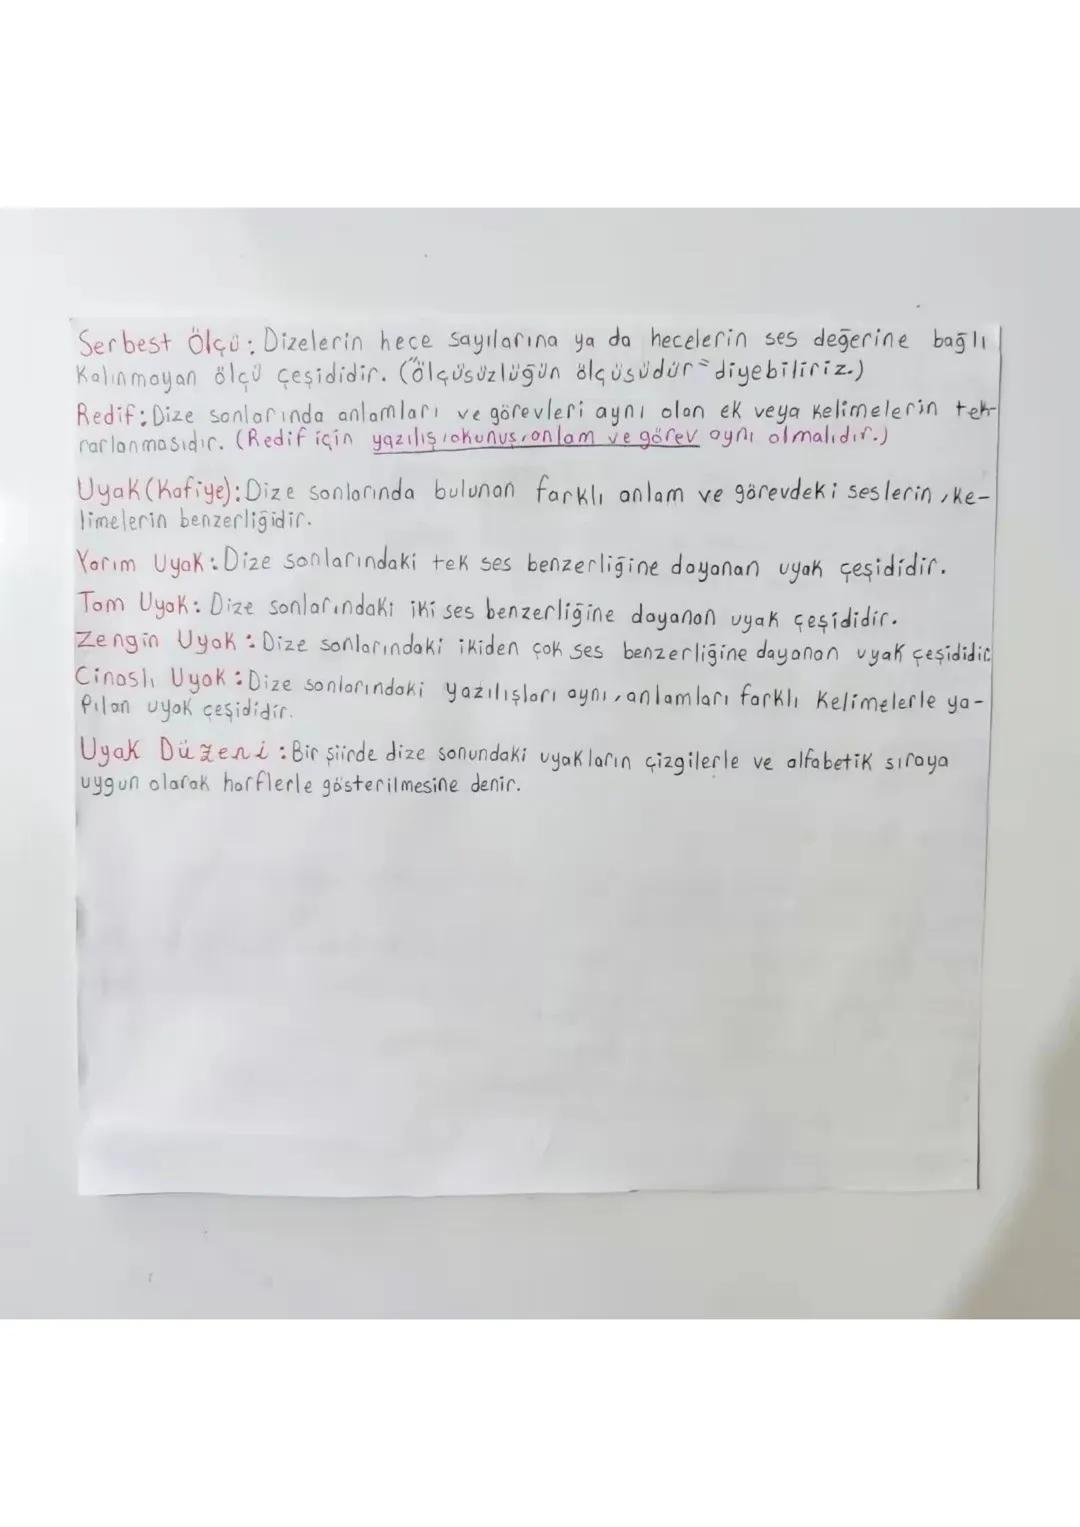 Serbest Ölçü: Dizelerin hece sayılarına ya da hecelerin ses değerine bağlı
Kalınmayan ölçü çeşididir. ("ölçüsüzlüğün ölçüsüdür" diyebiliriz.)
Redif: Dize sonlarında anlamları ve görevleri aynı olan ek veya kelimelerin tek-
rarlanmasıdır. (Redif için yazılış, okunuş, anlam ve görev aynı olmalıdır.)
Uyak (Kafiye): Dize sonlarında bulunan farklı anlam ve görevdeki seslerin, ke-
limelerin benzerliğidir.
Yarım Uyak: Dize sonlarındaki tek ses benzerliğine dayanan uyak çeşididir.
Tam Uyak: Dize sonlarındaki iki ses benzerliğine dayanan uyak çeşididir.
Zengin Uyak: Dize sonlarındaki ikiden çok ses benzerliğine dayanan uyak çeşididir
Cinaslı Uyak: Dize sonlarındaki yazılışları aynı, anlamları farklı kelimelerle ya-
pılan uyak çeşididir.
Uyak Düzeni: Bir şiirde dize sonundaki uyakların çizgilerle ve alfabetik sıraya
uygun olarak harflerle gösterilmesine denir.